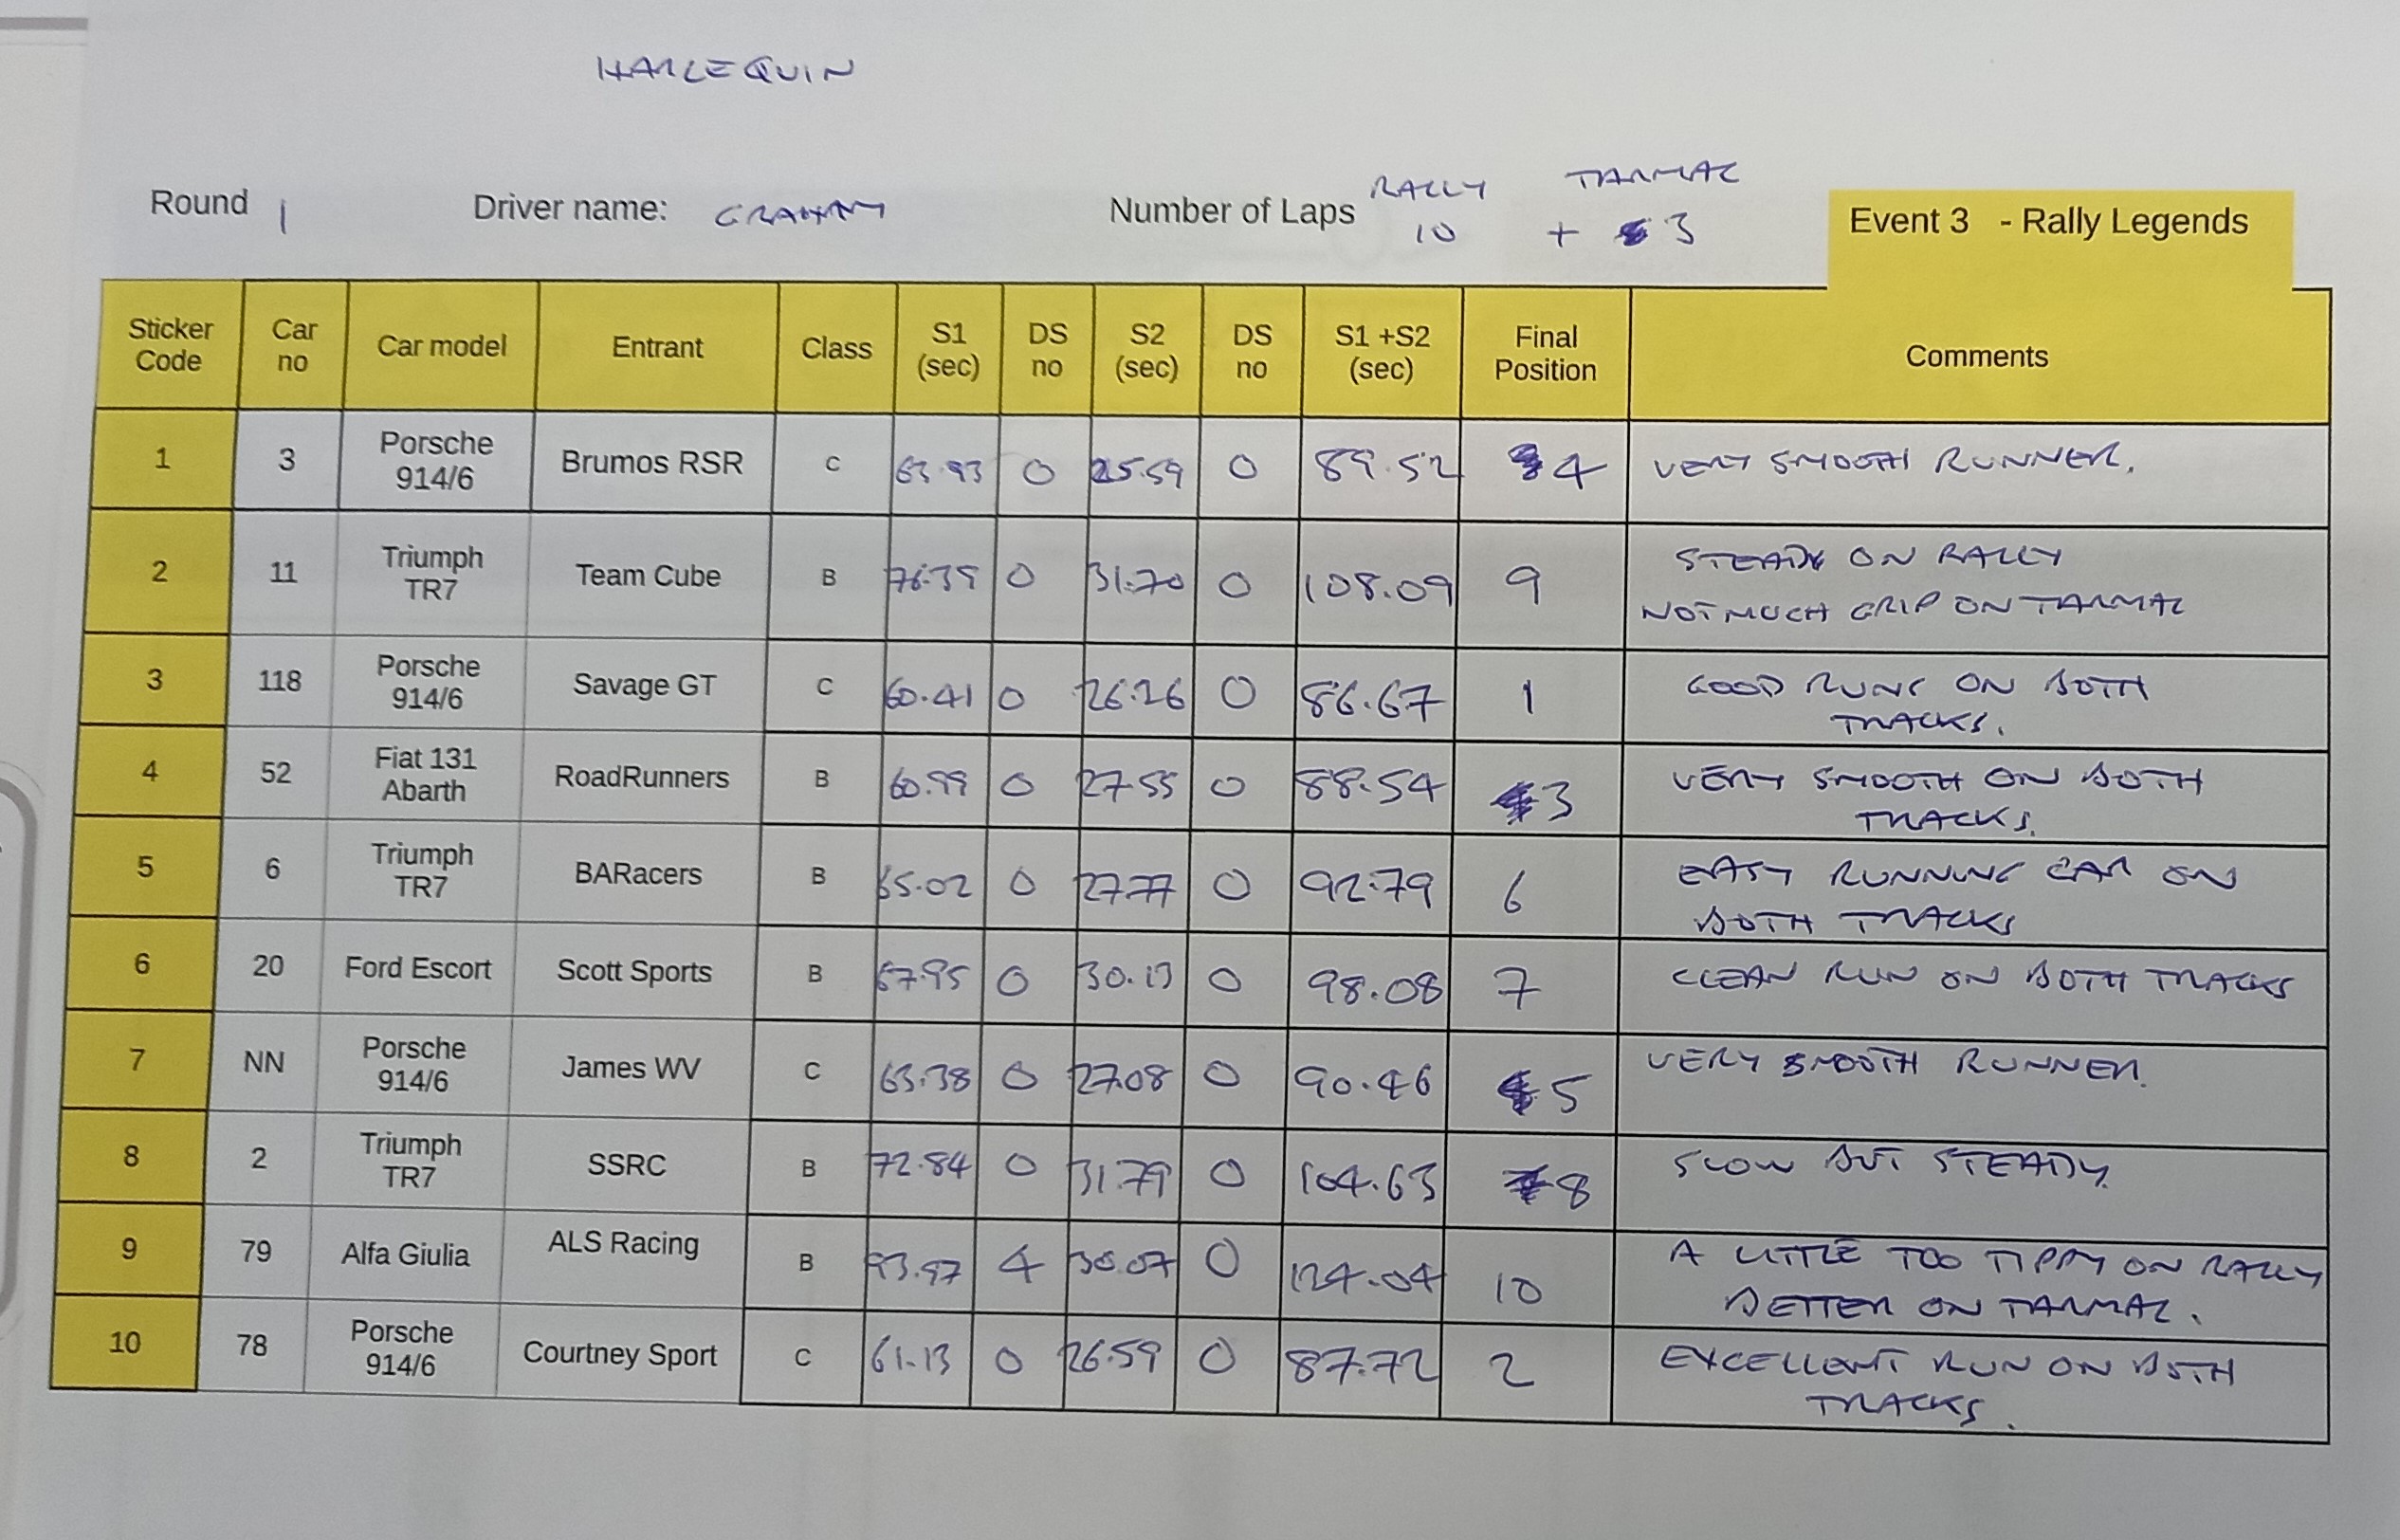 HARLEQUIN
RALLY TARMAC
Round 1 Driver name: GRAHAM Number of Laps 10 + 3 Event 3 - Rally Legends
Sticker Code Car no Car model Entrant Class S1 (sec) DS no S2 (sec) DS no S1 +S2 (sec) Final Position Comments
1 3 Porsche 914/6 Brumos RSR C 63.93 0 25.59 0 89.52 4 VERY SMOOTH RUNNER.
2 11 Triumph TR7 Team Cube B 76.39 0 31.70 0 108.09 9 STEADY ON RALLY
NOT MUCH GRIP ON TARMAC
3 118 Porsche 914/6 Savage GT C 60.41 0 26.26 0 86.67 1 GOOD RUNS ON BOTH
TRACKS.
4 52 Fiat 131 Abarth RoadRunners B 60.99 0 27.55 0 88.54 3 VERY SMOOTH ON BOTH
TRACKS.
5 6 Triumph TR7 BARacers B 65.02 0 27.77 0 92.79 6 EASY RUNNING CAR ON
BOTH TRACKS
6 20 Ford Escort Scott Sports B 67.95 0 30.13 0 98.08 7 CLEAN RUN ON BOTH TRACKS
7 NN Porsche 914/6 James WV C 63.38 0 27.08 0 90.46 5 VERY SMOOTH RUNNER.
8 2 Triumph TR7 SSRC B 72.84 0 31.79 0 104.63 8 SLOW BUT STEADY.
9 79 Alfa Giulia ALS Racing B 93.97 4 30.07 0 124.04 10 A LITTLE TOO TIPPY ON RALLY
BETTER ON TARMAC.
10 78 Porsche 914/6 Courtney Sport C 61.13 0 26.59 0 87.72 2 EXCELLENT RUN ON BOTH
TRACKS.